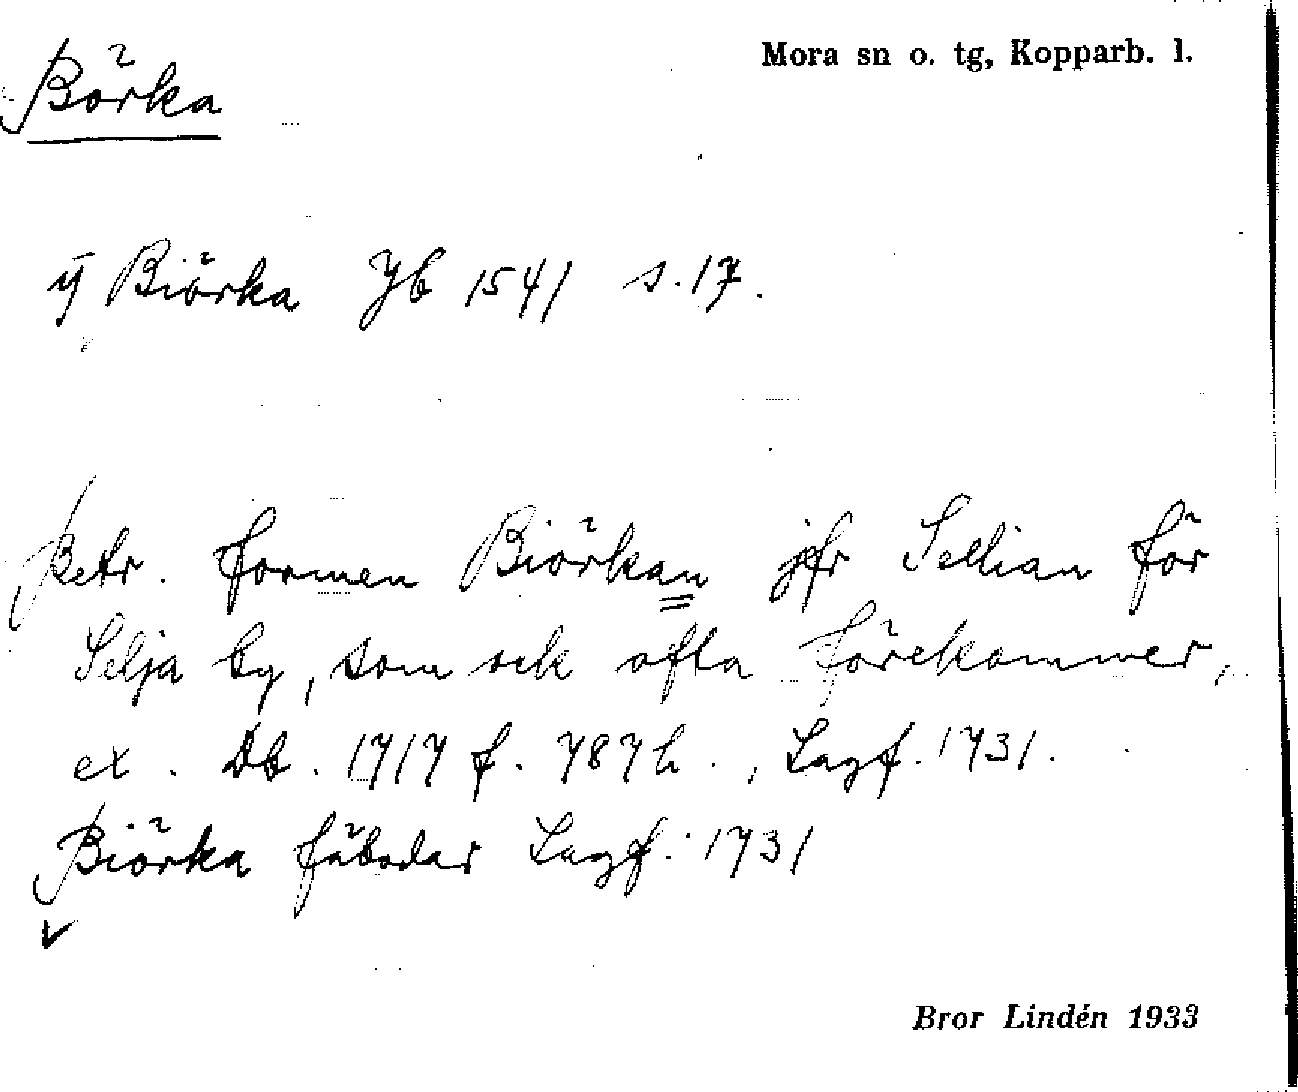 Mora sn o. tg, Kopparb. l.
Börka
ij Biörka Jb 1541 s. 17.
Betr. formen Biörkan jfr Sellian för
Selja by, som ock ofta förekommer,
ex. Db. 1717 f. 787 h., Lagf. 1731.
Biörka fäbodar Lagf. 1731
Bror Lindén 1933